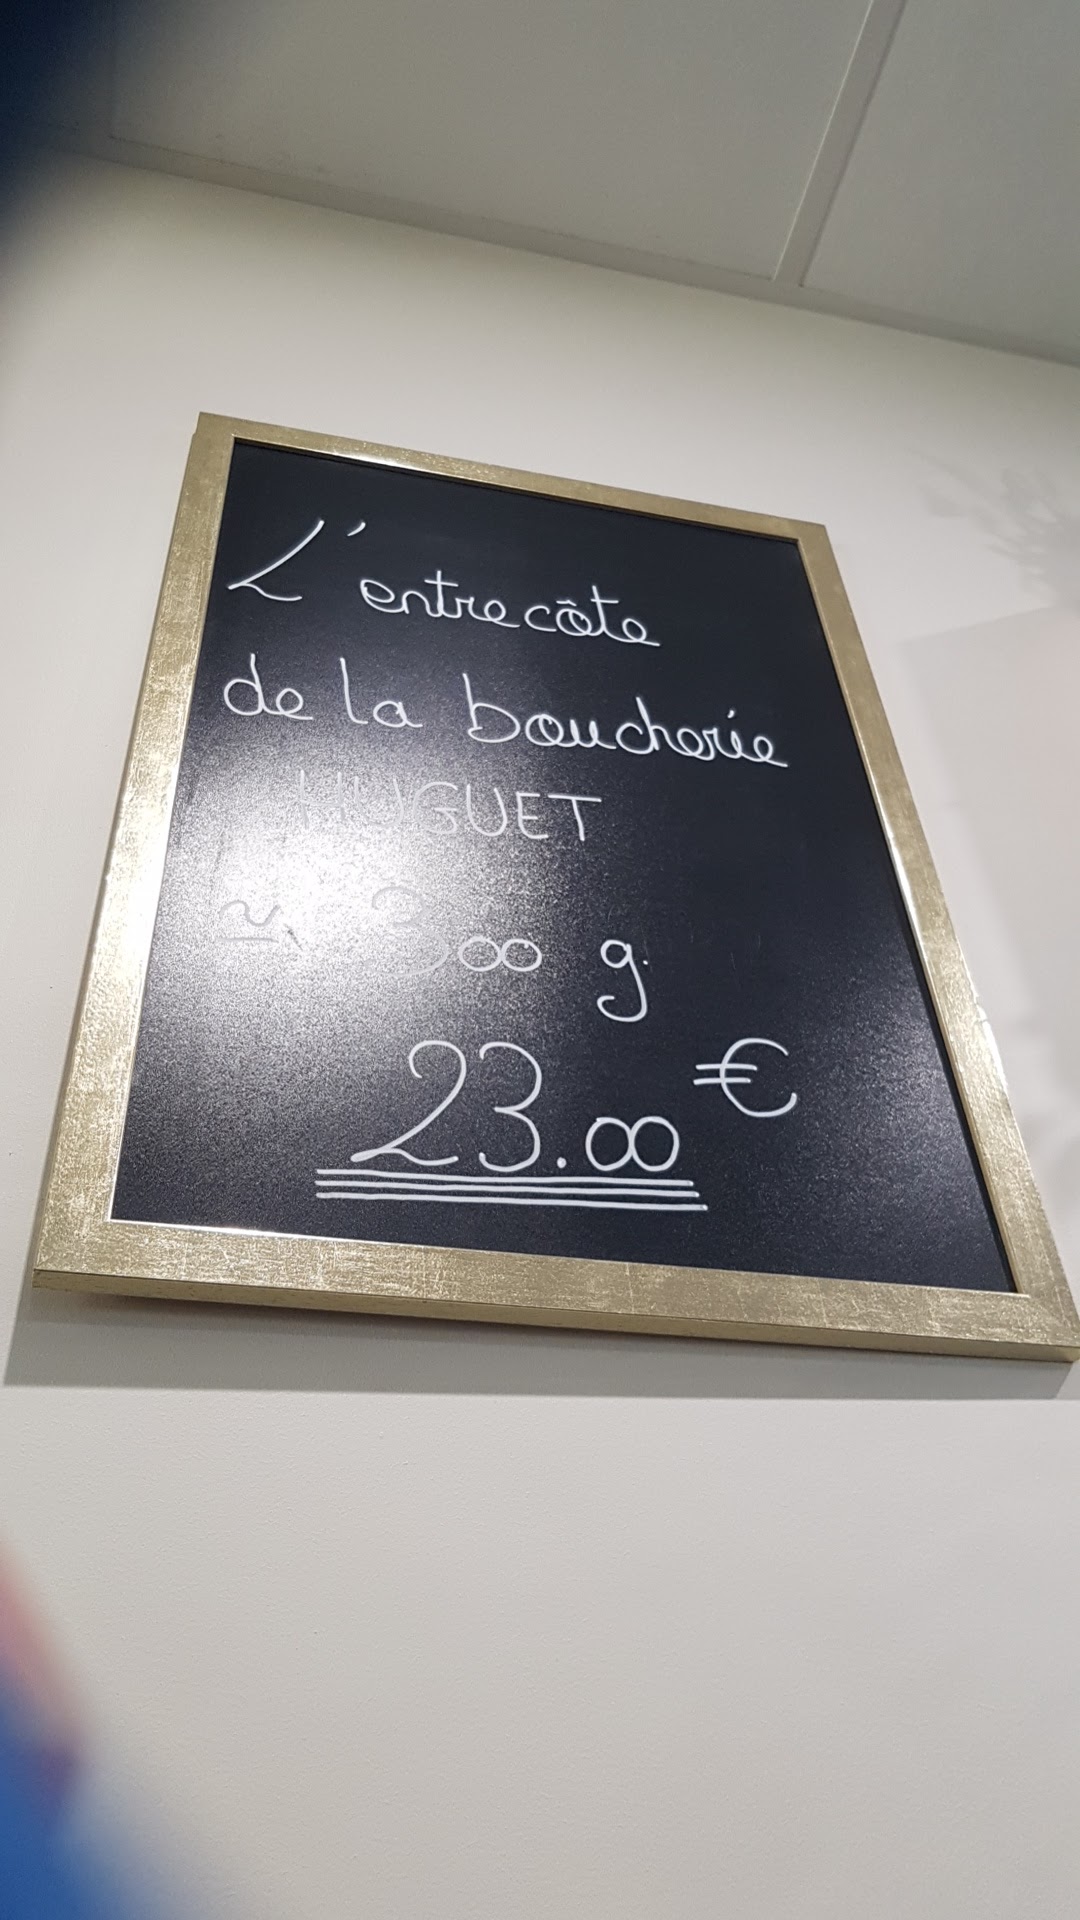 L'entrecôte
de la boucherie
HUGUET
≃ 300 g.
23.00 €